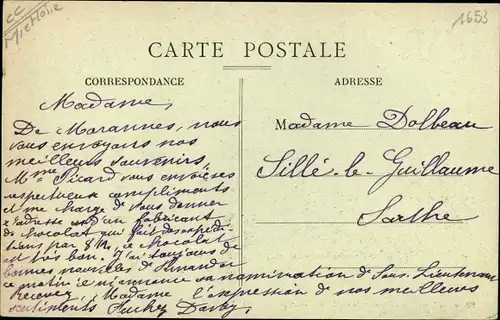 1653
CARTE POSTALE
CORRESPONDANCE
ADRESSE
Madame,
De Morannes, nous
vous envoyons nos
meilleurs souvenirs,
Mme Picard vous envoie ses
respectueux compliments
et me charge de vous donner
l'adresse d'un fabricant
de chocolat qui fait des expédi
tions par 8 K, ce chocolat
est très bon. J'ai toujours de
bonnes nouvelles de
ce matin il m'annonce sa nomination de Sous-Lieutenant
Recevez, Madame l'expression de nos meilleurs
sentiments
Madame Dolbeau
Sillé-le-Guillaume
Sarthe